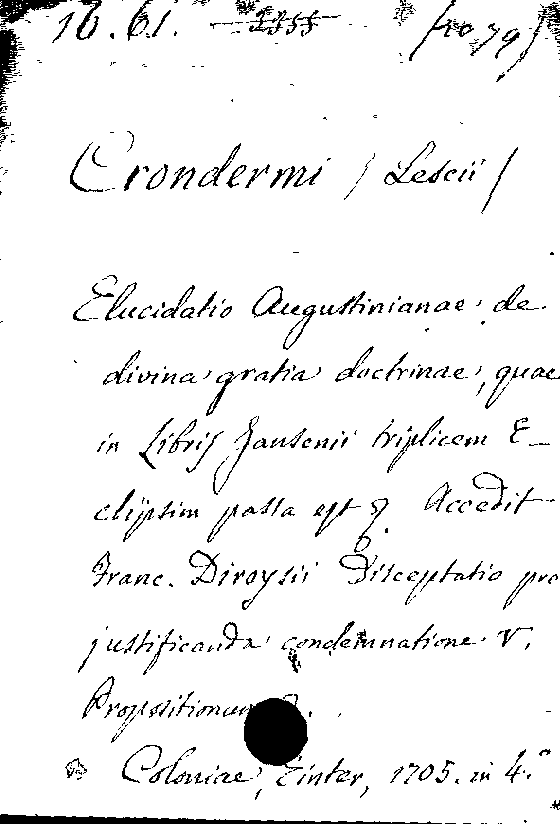 16.61. 1355 [4079]
Crondermi / Lescii /
Elucidatio Augustinianae de
divina gratia doctrinae, quae
in Libris Jansenii triplicem E-
clipsim passa est &. Accedit
Franc. Diroysii Disceptatio pro
justificanda condemnatione V.
Propositionum
Coloniae, Einter, 1705. in 4.°